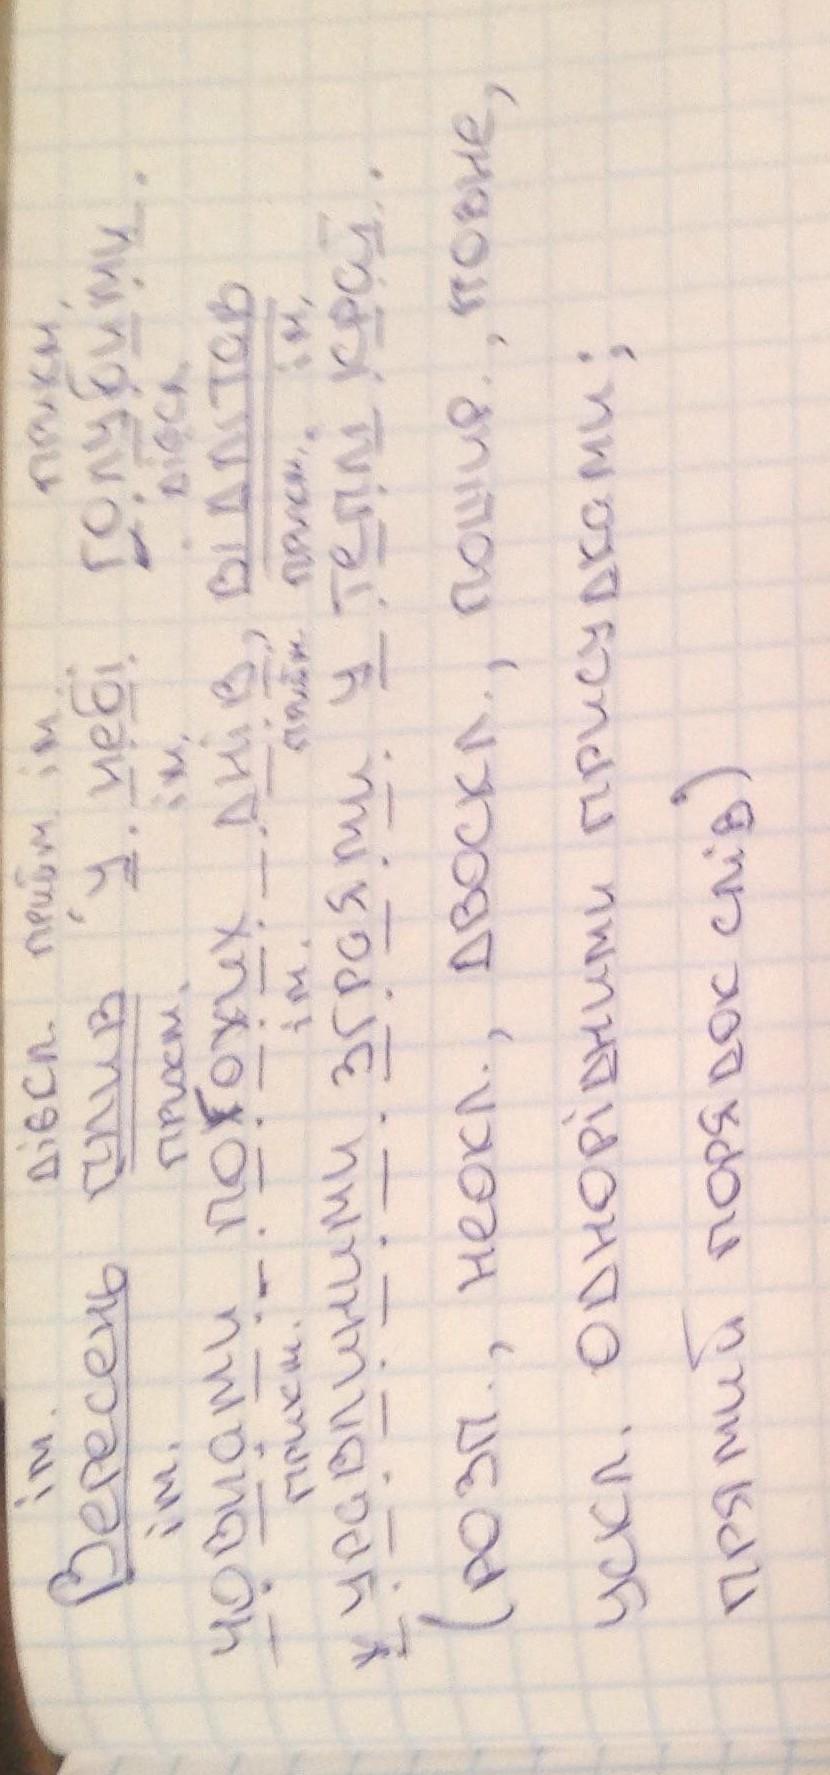 ім. дієсл прийм ім. прикм.
Вересень плив у небі голубими.
ім. прикм. ім. дієсл
човнами погожих днів, відлітав
прикм. ім. прийм прикм. ім.
журавлиними зграями у теплі краї.
(розп., неокл., двоскл., пошир., повне,
ускл. однорідними присудками;
прямий порядок слів)